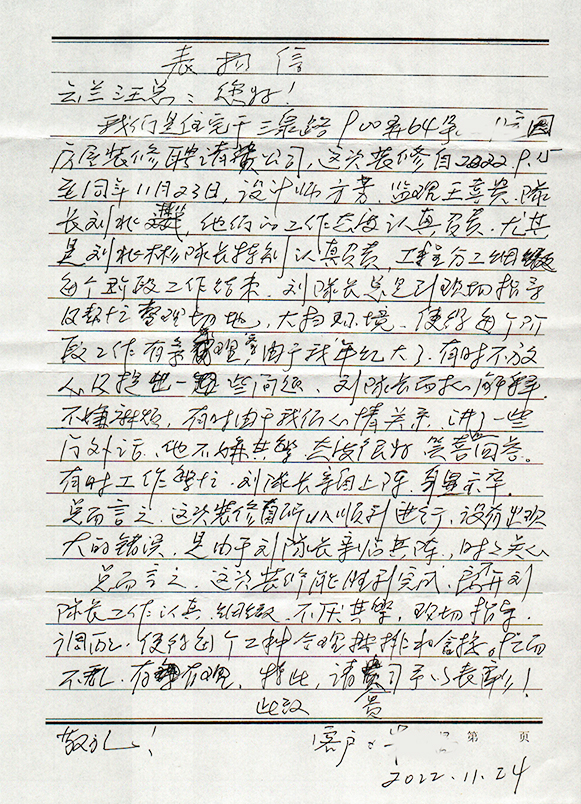 表扬信
云兰汪总：您好！
我们是住宅于三泉路900弄64号
房屋装修聘请贵公司，这次装修自2022.9.15
至同年11月23日，设计师方芳、监理王喜贵、队
长刘北，他们的工作态度认真负责，尤其
是刘北彬队长特别认真负责，工程分工细致
每个阶段工作结束，刘队长总是到现场指导
及帮忙整理场地，大扫环境，使得每个阶
段工作有条有理。由于我年纪大了，有时不放
心及提出一些问题，刘队长再三解释，
不嫌麻烦，有时由于我们心情关系，讲了一些
行外话，他不嫌其烦，态度很好，笑答。
有时工作繁忙，刘队长亲自上阵，身先士卒，
总而言之，这次装修所以顺利进行，没有出现
大的错误，是由于刘队长亲临其阵，时之关心
总而言之，这次装修能胜利完成，离开刘
队长工作认真，细致，不厌其烦，现场指导，
调配，使得每个工种合理安排和衔接，忙而
不乱，有条有理，特此，请贵司予以表彰！
此致
敬礼！ 客户： 第 页
2022.11.24